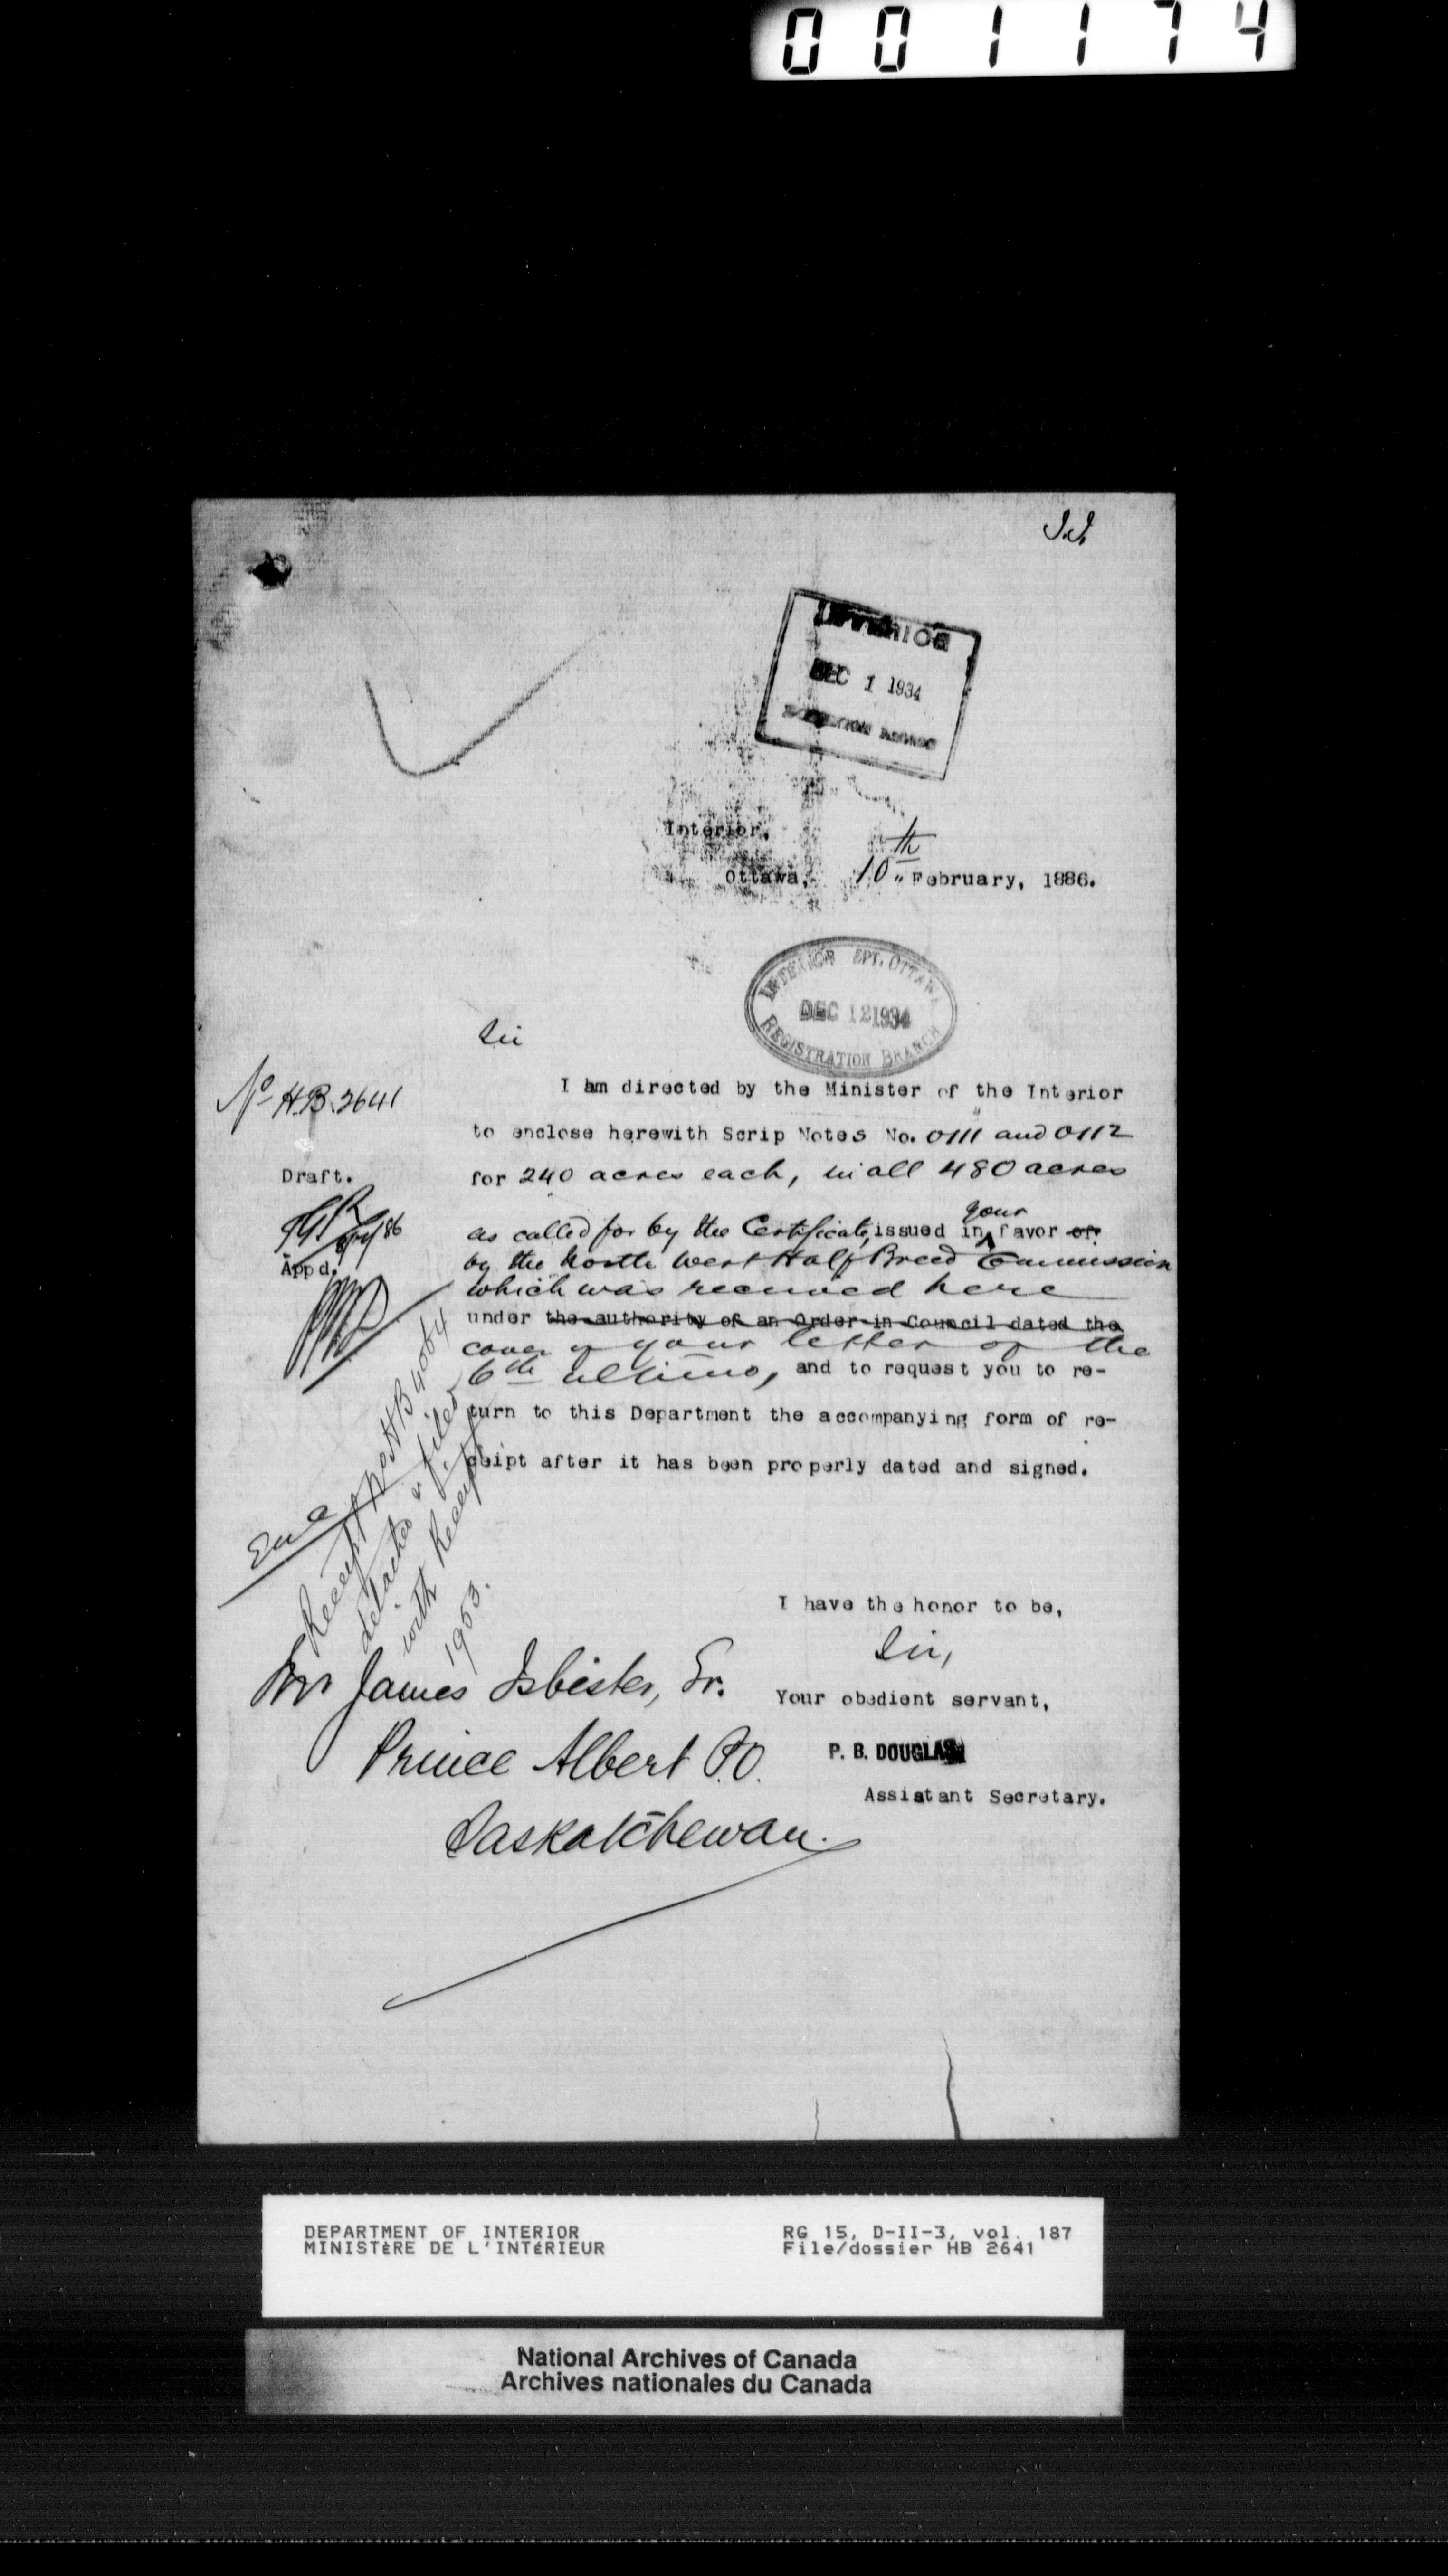 001174
INTERIOR
DEC 1 1934
Interior,
Ottawa, 10th February, 1886.
INTERIOR DEPT. OTTAWA
DEC 12 1934
REGISTRATION BRANCH
Sir
No HB.2641
I am directed by the Minister of the Interior
to enclose herewith Scrip Notes No. 0111 and 0112
Draft.
for 240 acres each, in all 480 acres
your
as called for by the Certificate, issued in favor of
App'd.
by the North West Half Breed Commission
which was received here
under the authority of an Order-in-Council dated the
cover of your letter of the
6th ultimo, and to request you to re-
turn to this Department the accompanying form of re-
ceipt after it has been properly dated and signed.
Receipt No HB 40064
detached & filed
with Receipt
1953.
I have the honor to be,
Sir,
Mr James Isbister, Sr.
Your obedient servant,
Prince Albert P.O.
P. B. DOUGLAS
Assistant Secretary.
Saskatchewan.
DEPARTMENT OF INTERIOR
MINISTÈRE DE L'INTÉRIEUR
RG 15, D-II-3, vol. 187
File/dossier HB 2641
National Archives of Canada
Archives nationales du Canada